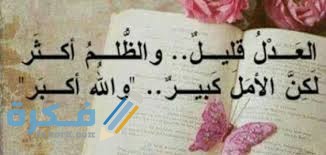 العَدْلُ قَليلٌ.. والظُّلمُ أكثَر
لكِنَّ الأمَل كَبيرٌ.. "والله أكبَر"
فكرة